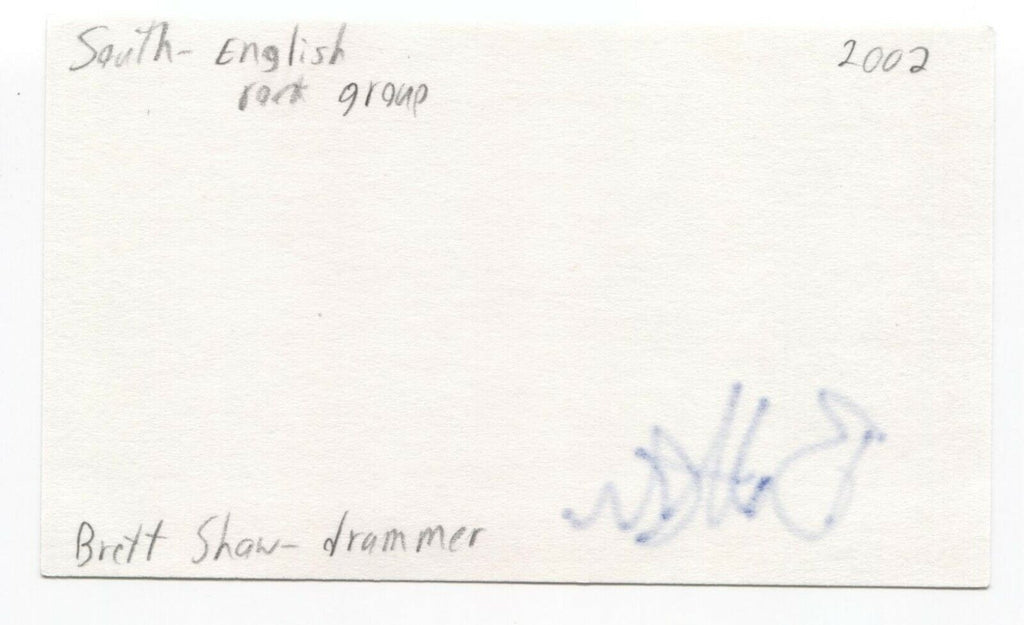 South- English
rock group
2002
Brett Shaw- drummer